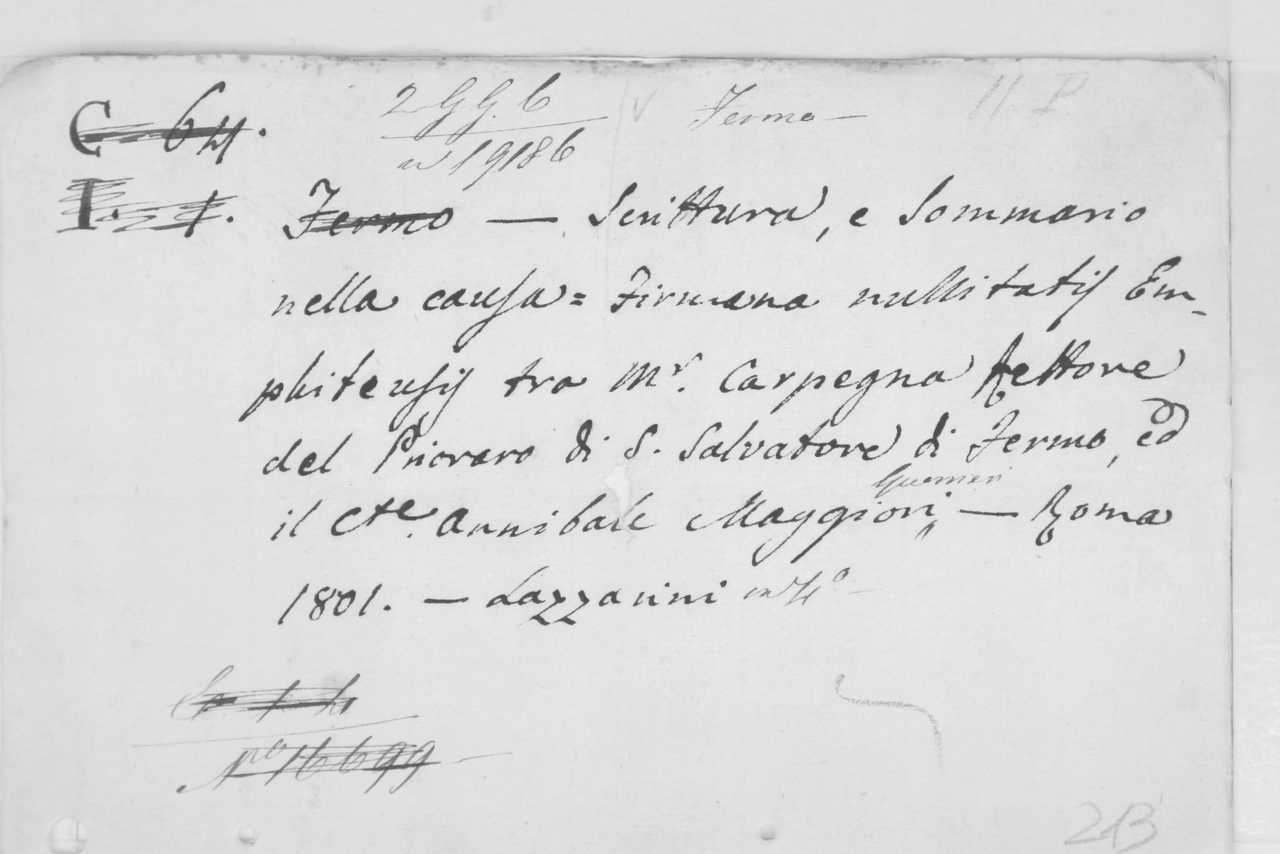 C 64.
2 GG. 6
n 19186
Fermo —
11. P
I. 1.
Fermo — Scrittura, e Sommario
nella causa = Firmana nullitatis Em-
phiteusis tra Mr. Carpegna Rettore
del Prioraro di S. Salvatore di Fermo, ed
Guerrieri
il Cte. Annibale Maggiori — Roma
1801. — Lazzarini in 4o
No 16699
213